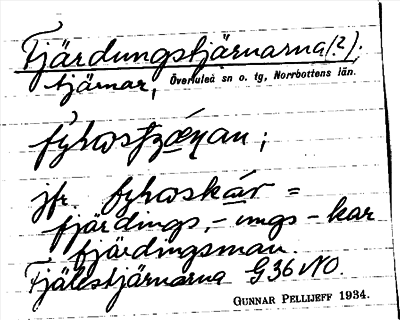 Fjärdungstjärnarna(?);
tjärnar, Överluleå sn o. tg, Norrbottens län.
jfr. =
fjärdings,- ungs-kar
fjärdingsman.
Fjälestjärnarna G36 NO.
GUNNAR PELLIJEFF 1934.